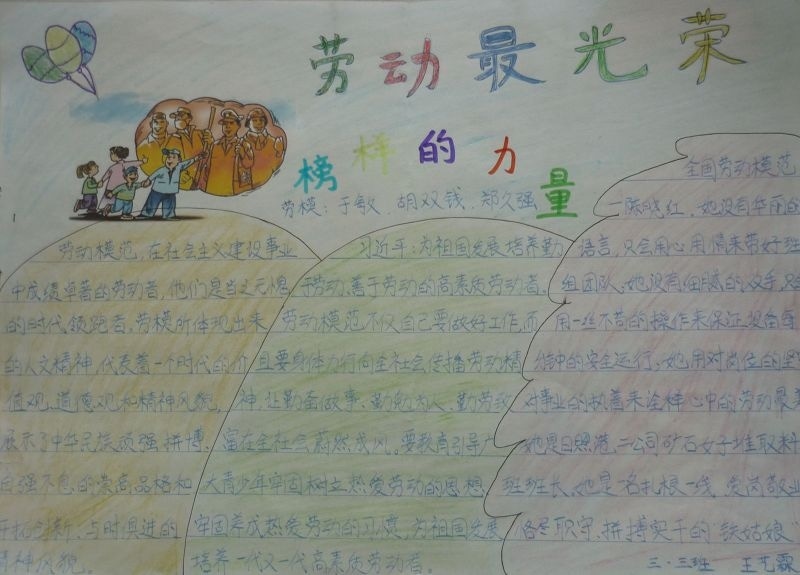 劳动最光荣
榜样的力量
劳模：于敏 胡双钱 郑久强
劳动模范，在社会主义建设事业
中成绩卓著的劳动者，他们是当之无愧
的时代领跑者。劳模所体现出来
的人文精神，代表着一个时代的价
值观、道德观和精神风貌，
展示了中华民族顽强拼搏、
自强不息的崇高品格和
开拓创新、与时俱进的
精神风貌。
习近平：为祖国发展培养勤
于劳动、善于劳动的高素质劳动者。
劳动模范不仅自己要做好工作，而
且要身体力行向全社会传播劳动精
神，让勤奋做事、勤勉为人、勤劳致
富在全社会蔚然成风。要教育引导广
大青少年牢固树立热爱劳动的思想、
牢固养成热爱劳动的习惯，为祖国发展
培养一代又一代高素质劳动者。
全国劳动模范
—陈晓红，她没有华丽的
语言，只会用心用情来带好班
组团队；她没有细腻的双手，只会
用一丝不苟的操作来保证设备每
分钟的安全运行。她用对岗位的坚
对事业的执着来诠释心中的劳动最美
她是日照港二公司矿石女子堆取料
班班长，她是一名扎根一线、爱岗敬业
各尽职守、拼搏实干的"铁姑娘"
三·三班 王艺霖